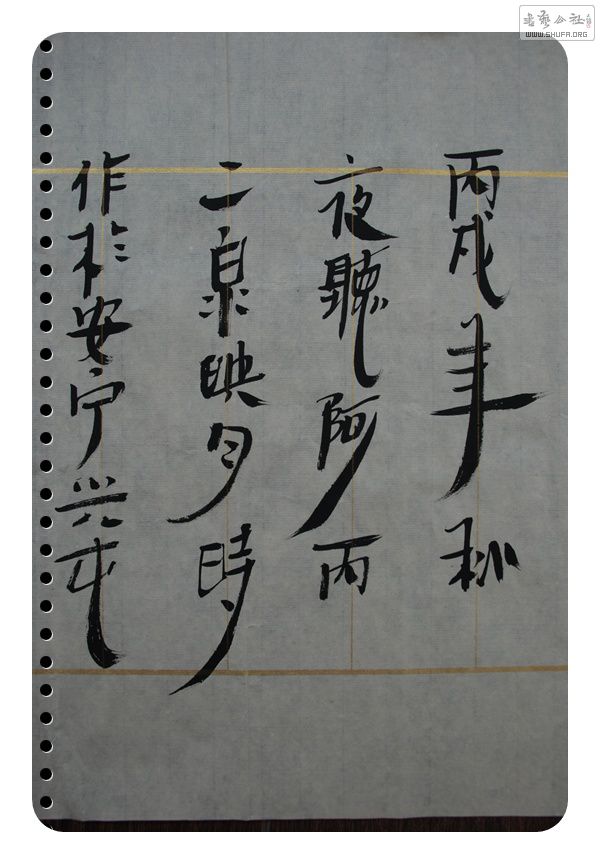 丙戌年秋
夜聽阿丙
二泉映月時
作於安宁
書藝公社
WWW.SHUFA.ORG